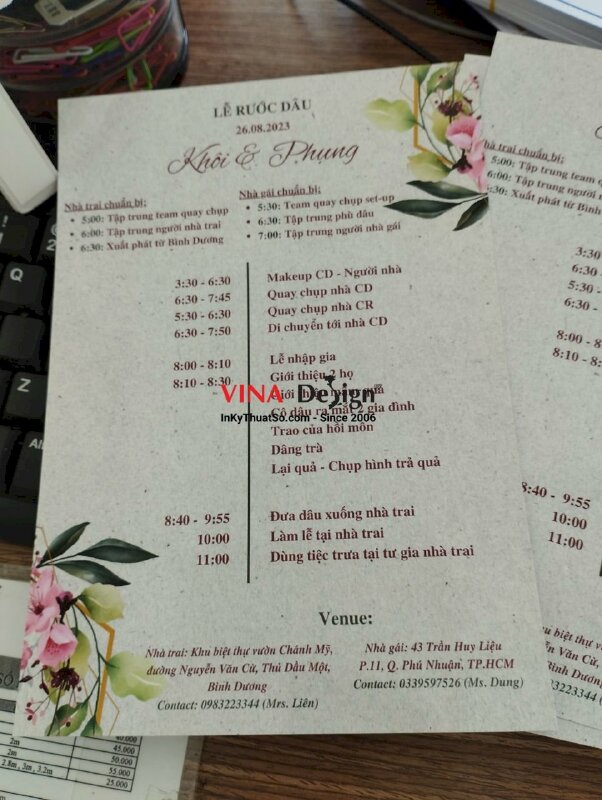 LỄ RƯỚC DÂU
26.08.2023
Khôi & Phụng
Nhà trai chuẩn bị:
• 5:00: Tập trung team quay chụp
• 6:00: Tập trung người nhà trai
• 6:30: Xuất phát từ Bình Dương
Nhà gái chuẩn bị:
• 5:30: Team quay chụp set-up
• 6:30: Tập trung phù dâu
• 7:00: Tập trung người nhà gái
3:30 - 6:30 Makeup CD - Người nhà
6:30 - 7:45 Quay chụp nhà CD
5:30 - 6:30 Quay chụp nhà CR
6:30 - 7:50 Di chuyển tới nhà CD
8:00 - 8:10 Lễ nhập gia
8:10 - 8:30 Giới thiệu 2 họ
Giới thiệu
VINA Design
Cô dâu ra mắt 2 gia đình
InKyThuatSo.com - Since 2006
Trao của hồi môn
Dâng trà
Lại quả - Chụp hình trả quả
8:40 - 9:55 Đưa dâu xuống nhà trai
10:00 Làm lễ tại nhà trai
11:00 Dùng tiệc trưa tại tư gia nhà trai
Venue:
Nhà trai: Khu biệt thự vườn Chánh Mỹ,
đường Nguyễn Văn Cừ, Thủ Dầu Một,
Bình Dương
Contact: 0983223344 (Mrs. Liên)
Nhà gái: 43 Trần Huy Liệu
P.11, Q. Phú Nhuận, TP.HCM
Contact: 0339597526 (Ms. Dung)
Nhà trai chuẩn bị:
5:00: Tập trung team q
6:00: Tập trung người n
:30: Xuất phát từ Bình
3:30
6:30 -
5:30 -
6:30 -
8:00 - 8
8:10 - 8:
8:40 - 9:55
10:00
11:00
Khu biệt thự v
uyễn Văn Cừ
Bình Dương
3223344 (
2m
2m
2.8m, 3m, 3.2m
40.000
45.000
50.000
55.000
25.000